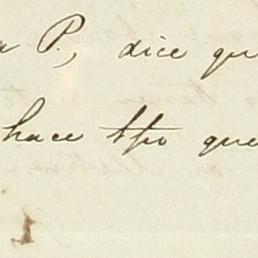 a P., dice que
hace tpo que